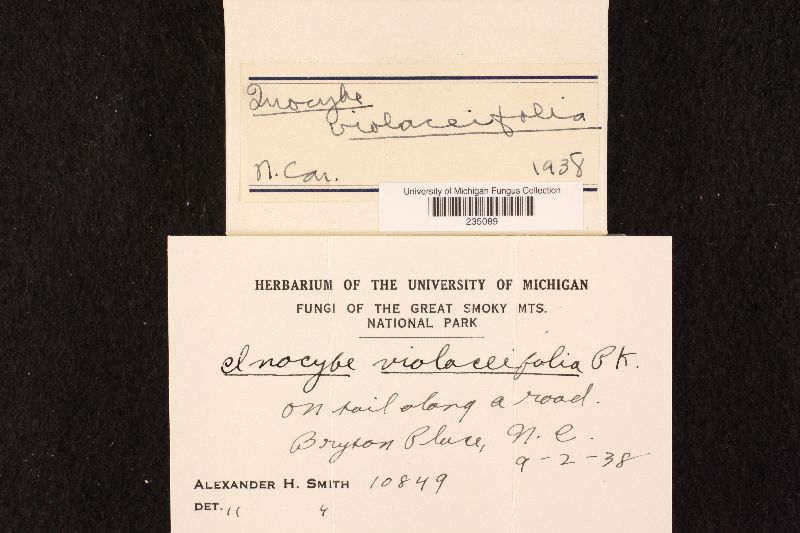 Inocybe
violaceifolia
N. Car. 1938
University of Michigan Fungus Collection
235089
HERBARIUM OF THE UNIVERSITY OF MICHIGAN
FUNGI OF THE GREAT SMOKY MTS.
NATIONAL PARK
Inocybe violaceifolia Pk.
on soil along a road.
Bryson Place, N. C.
9-2-38
ALEXANDER H. SMITH 10849
DET. " "